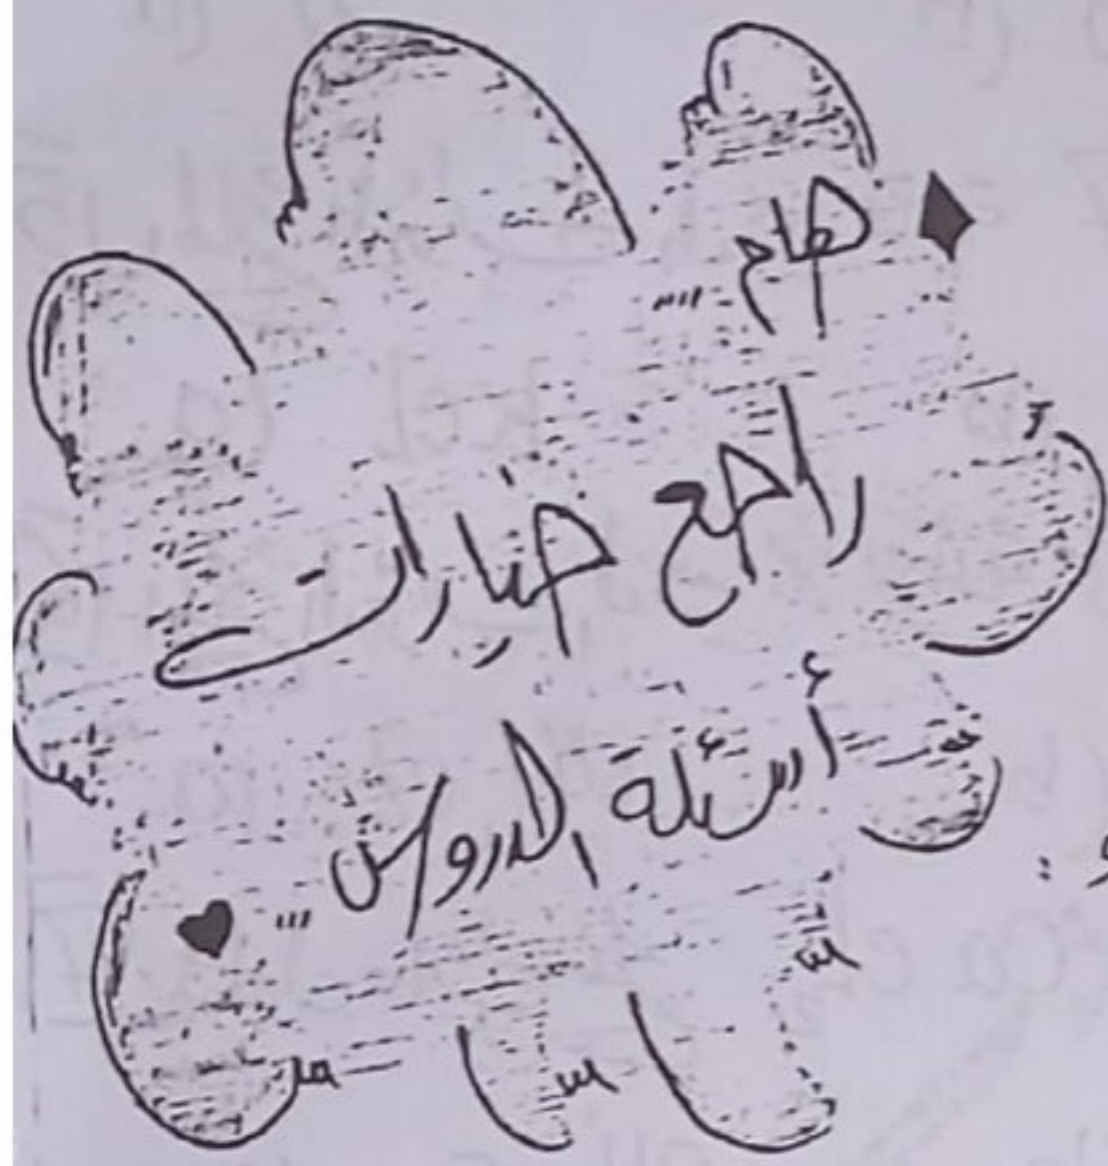 هام ...
راجع خيارات
أسئلة الدروس ...